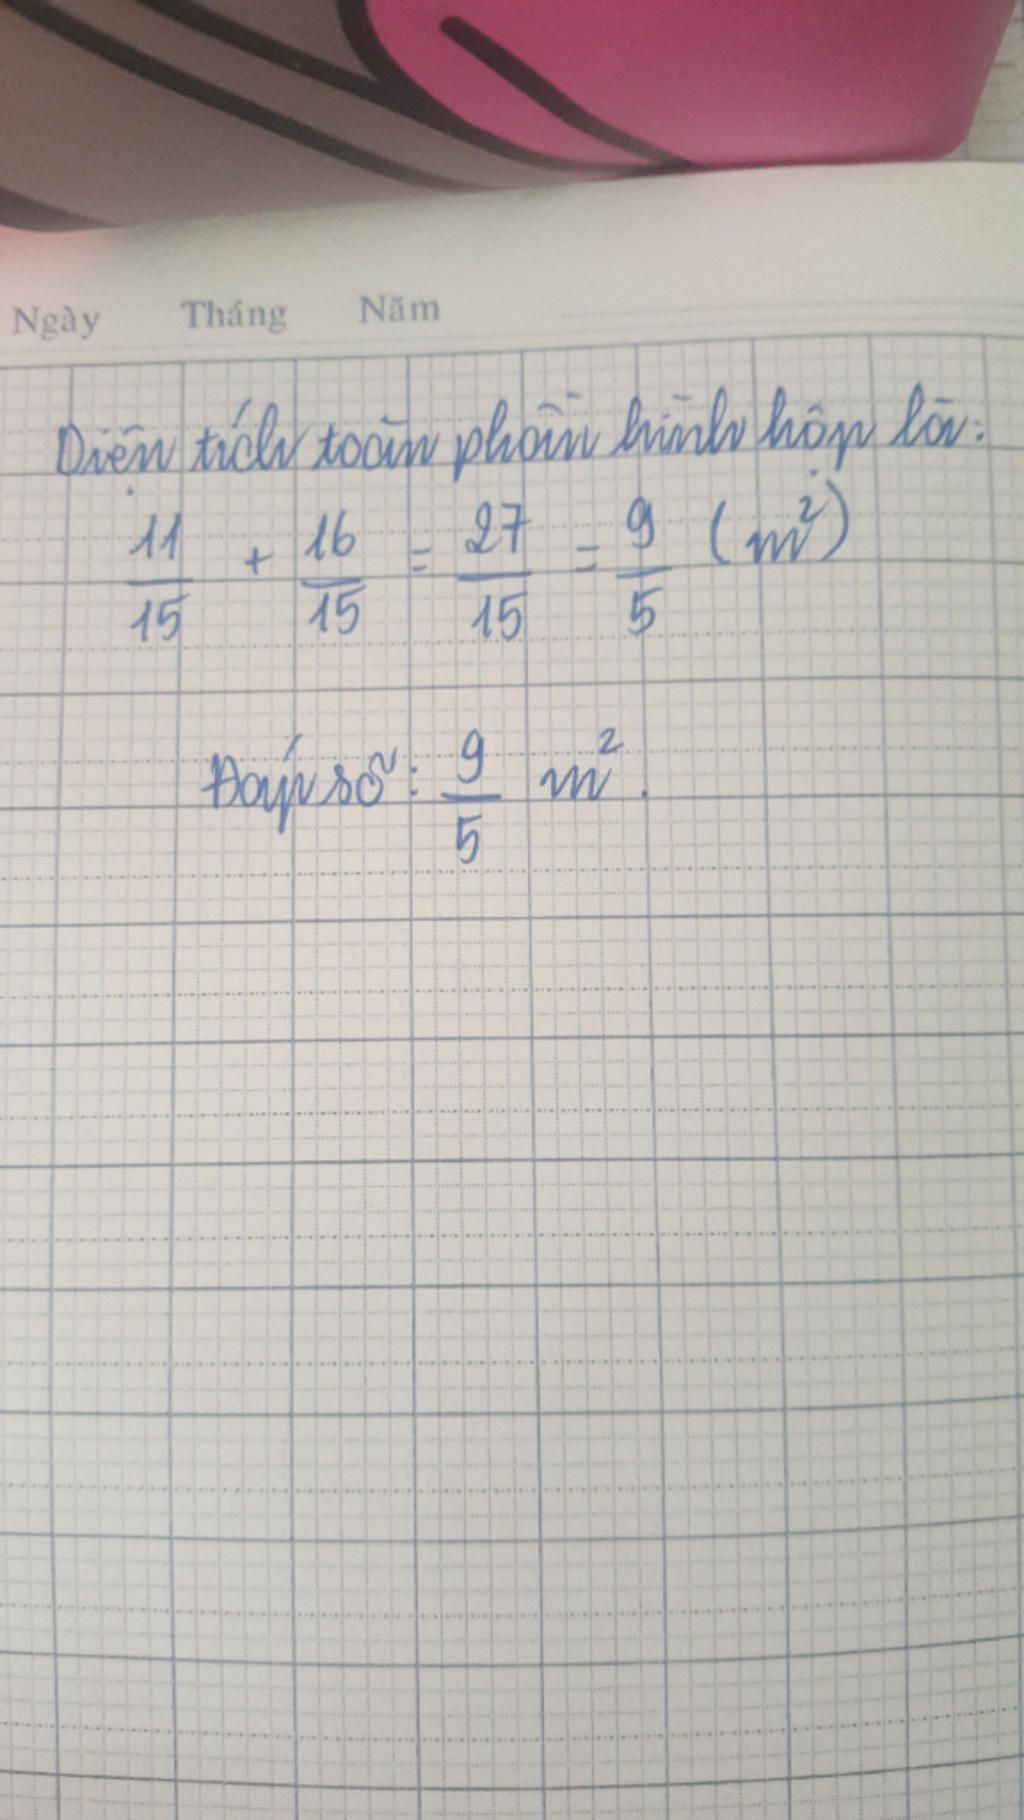 Ngày Tháng Năm
Diện tích toàn phần hình hộp là:
11/15 + 16/15 = 27/15 = 9/5 (m²)
Đáp số: 9/5 m².